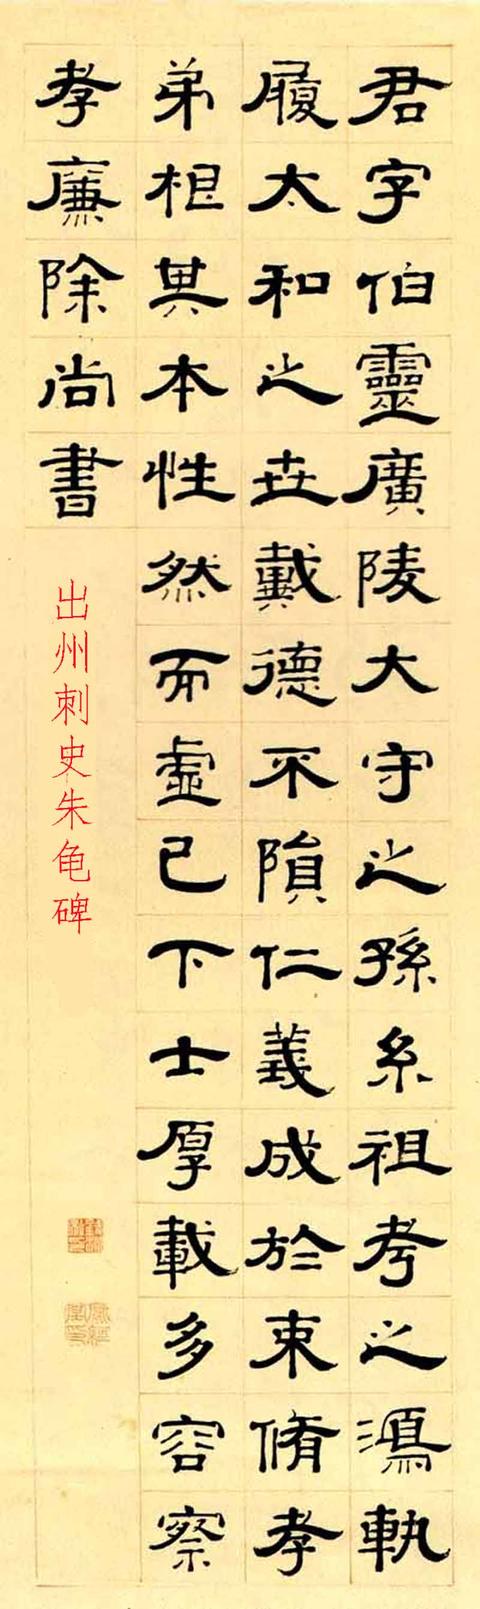 君字伯靈廣陵大守之孫糸祖考之鴻軌
履太和之垚戴德不隕仁義成於束脩孝
弟根其本性然而虛己下士厚載多容察
孝廉除尚書
出州刺史朱龟碑